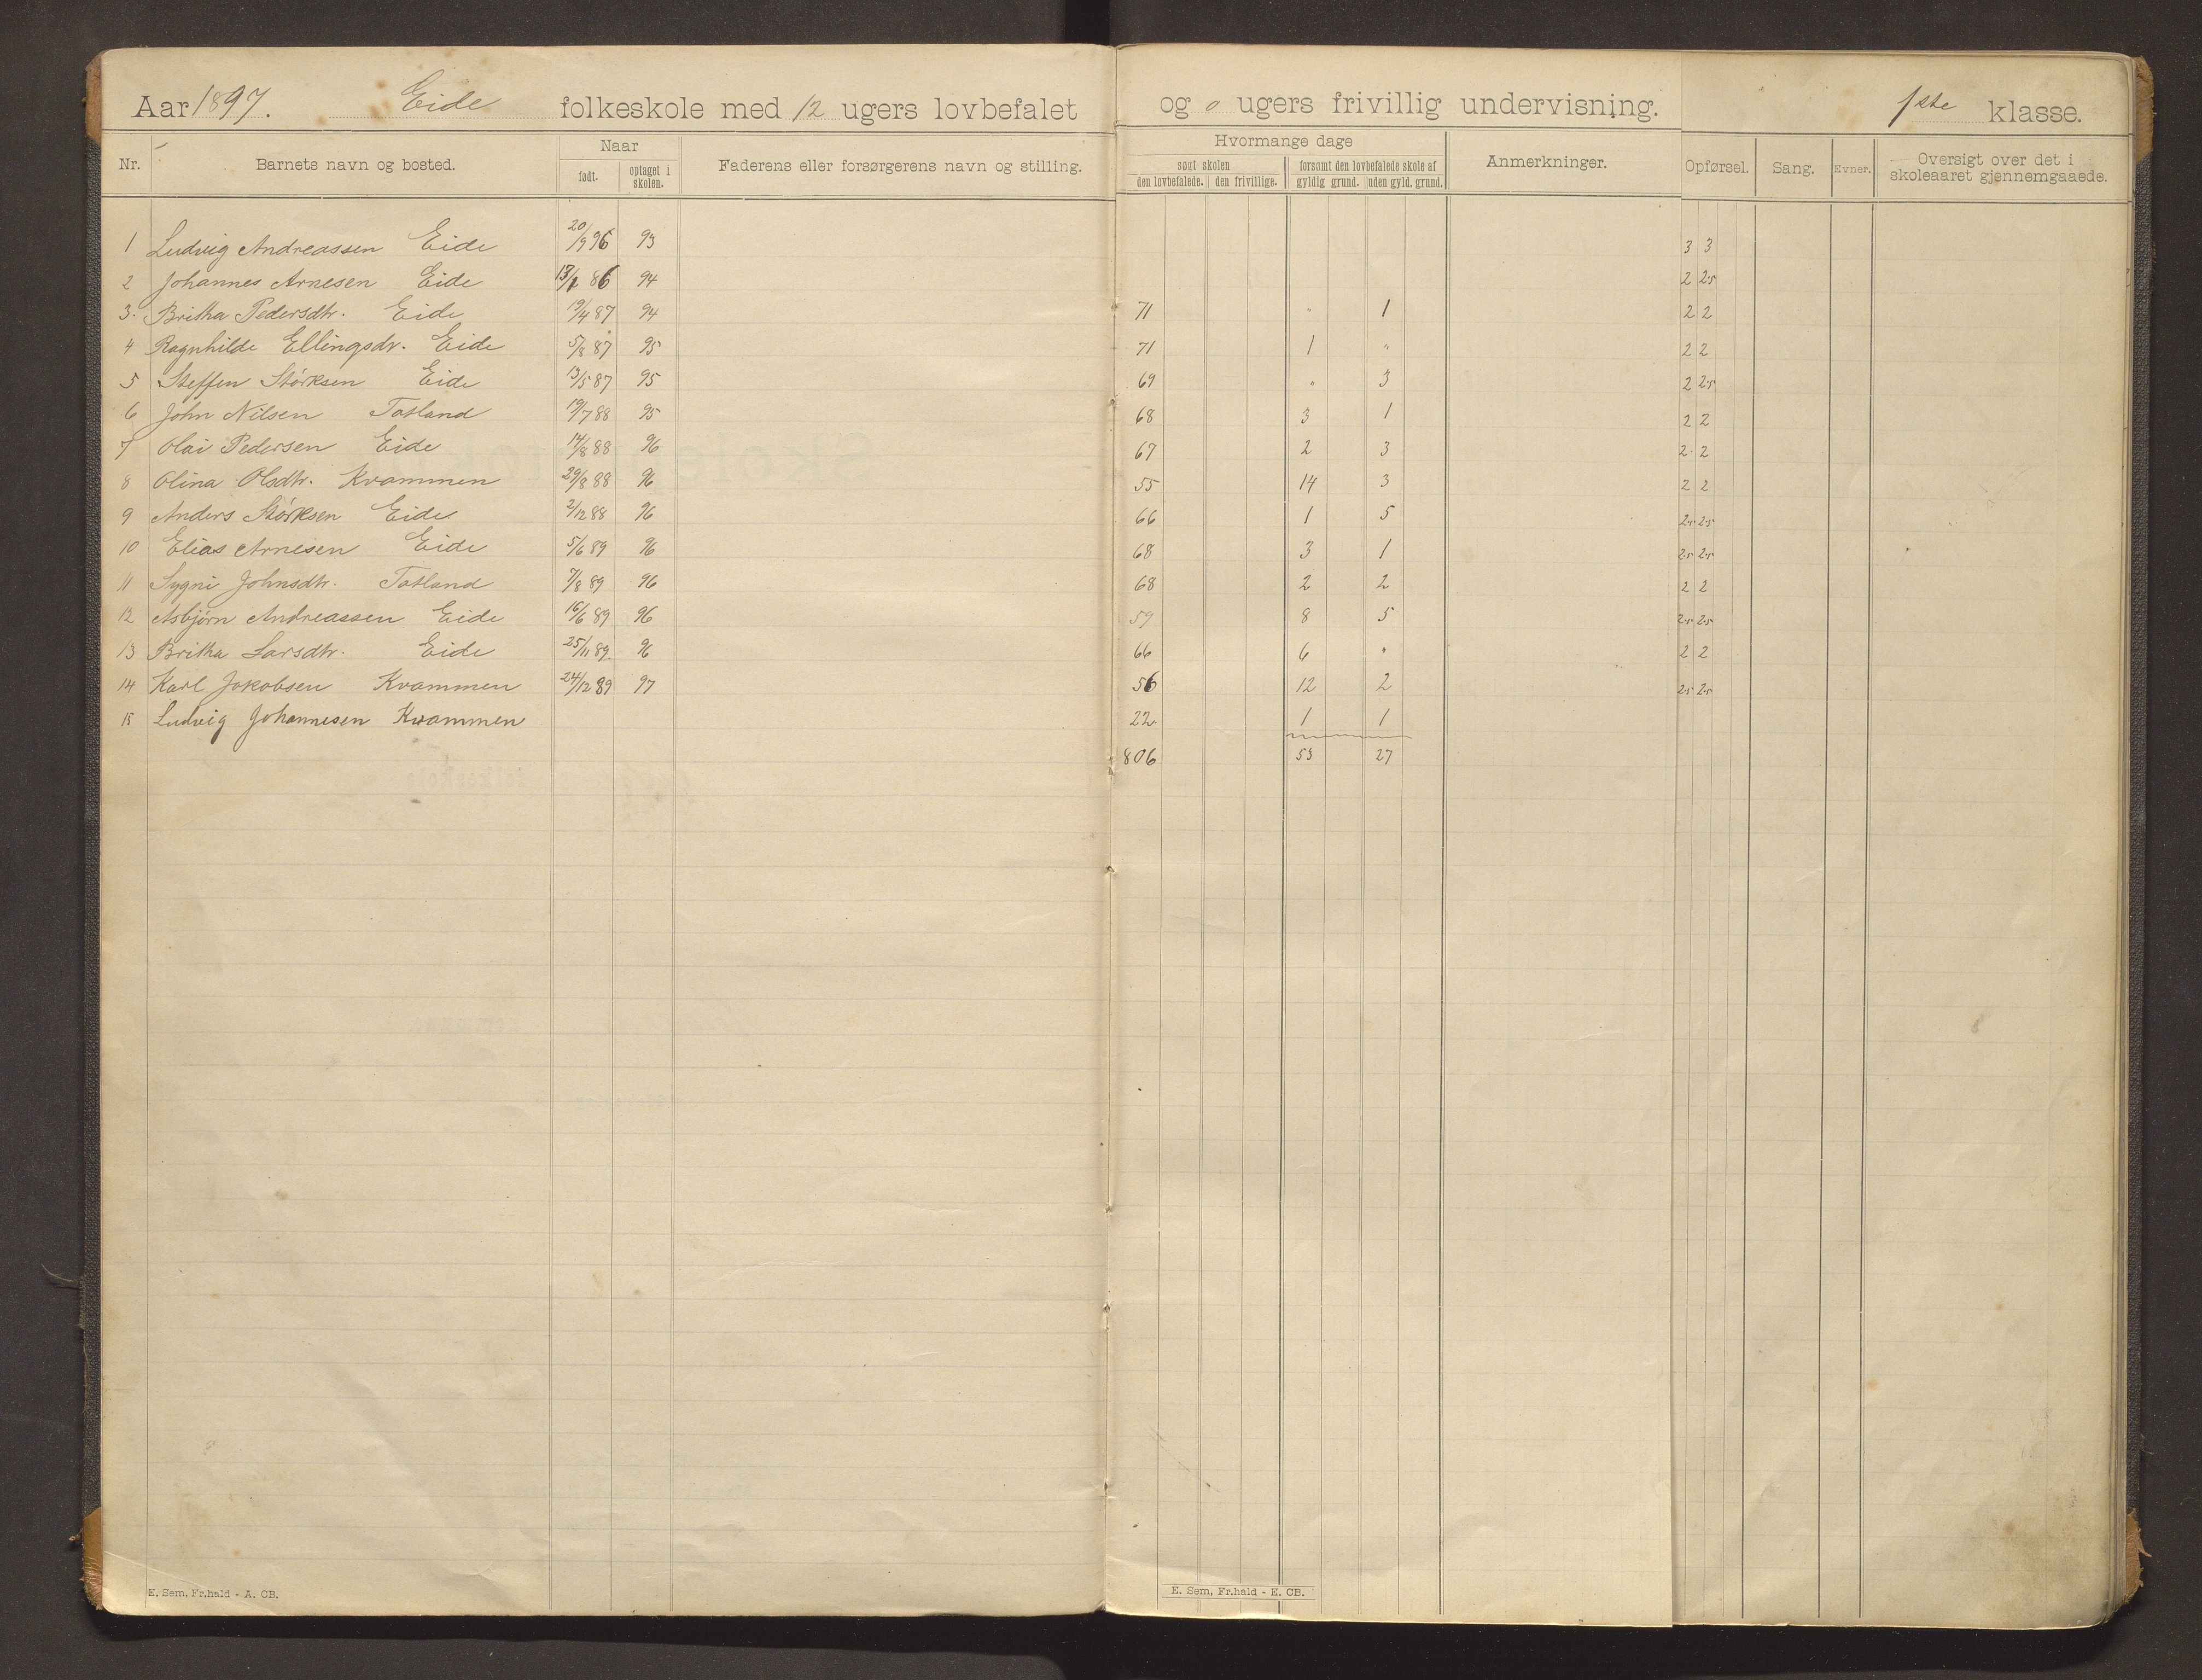 Aar 1897. Eide folkeskole med 12 ugers lovbefalet og 0 ugers frivillig undervisning. 1ste klasse.
Nr. Barnets navn og bosted. Naar født. optaget i skolen. Faderens eller forsørgerens navn og stilling. Hvormange dage søgt skolen den lovbefalede. den frivillige. forsømt den lovbefalede skole af gyldig grund. uden gyld. grund. Anmerkninger. Opførsel. Sang. Evner. Oversigt over det i skoleaaret gjennemgaaede.
1 Ludvig Andreassen Eide 20/9 96 93 3 3
2 Johannes Arnesen Eide 86 94 2 2.5
3. Britha Pedersdtr. Eide 19/4 87 94 71 " 1 2 2
4 Ragnhilde Ellingsdr. Eide 5/8 87 95 71 1 " 2 2
5 Steffen Størksen Eide 13/5 87 95 69 " 3 2 2.5
6 John Nilsen Tatland 19/7 88 95 68 3 1 2 2
7 Olai Pedersen Eide 14/8 88 96 67 2 3 2 2
8 Olina Olsdtr. Kvammen 29/8 88 96 55 14 3 2 2
9 Anders Størksen Eide 2/12 88 96 66 1 5 2.5 2.5
10 Elias Arnesen Eide 5/6 89 96 68 3 1 2.5 2.5
11 Sygni Johnsdtr. Tatland 7/8 89 96 68 2 2 2 2
12 Asbjørn Andreassen Eide 16/6 89 96 59 8 5 2.5 2.5
13 Britha Larsdtr. Eide 25/11 89 96 66 6 " 2 2
14 Karl Jakobsen Kvammen 24/12 89 97 56 12 2 2.5 2.5
15 Ludvig Johannesen Kvammen 22. 1 1
806 53 27
E. Sem, Fr.hald - A. CB.
E. Sem, Fr.hald - E. CB.